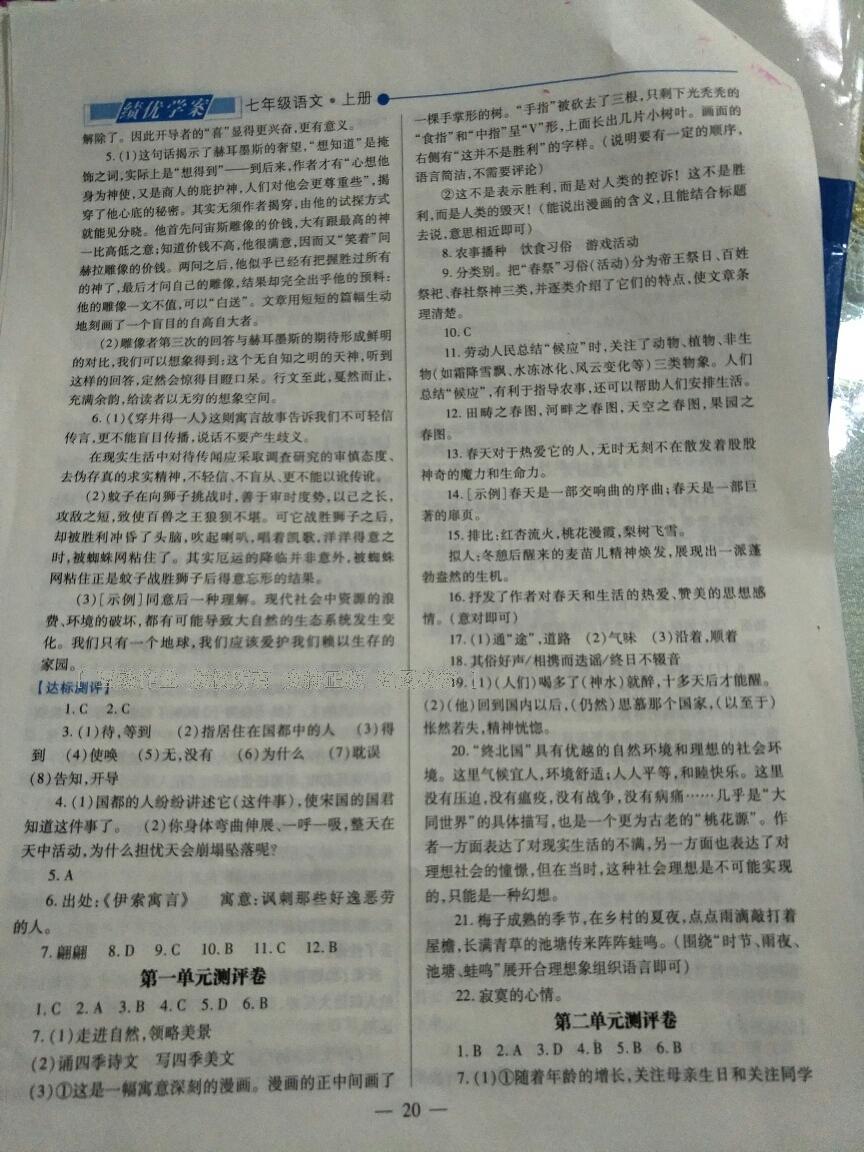 绩优学案 七年级语文·上册
解除了。因此开导者的“喜”显得更兴奋,更有意义。
5.(1)这句话揭示了赫耳墨斯的奢望,“想知道”是掩
饰之词,实际上是“想得到”——到后来,作者才有“心想他
身为神使,又是商人的庇护神,人们对他会更尊重些”,揭
穿了他心底的秘密。其实无须作者揭穿,由他的试探方式
就能见分晓。他首先问宙斯雕像的价钱,大有跟最高的神
一比高低之意;知道价钱不高,他很满意,因而又“笑着”问
赫拉雕像的价钱。两问之后,他似乎已经有把握胜过所有
的神了,最后才问自己的雕像,结果却完全出乎他的预料:
他的雕像一文不值,可以“白送”。文章用短短的篇幅生动
地刻画了一个盲目的自高自大者。
(2)雕像者第三次的回答与赫耳墨斯的期待形成鲜明
的对比,我们可以想象得到:这个无自知之明的天神,听到
这样的回答,定然会惊得目瞪口呆。行文至此,戛然而止,
充满余韵,给读者以无穷的想象空间。
6.(1)《穿井得一人》这则寓言故事告诉我们不可轻信
传言,更不能盲目传播,说话不要产生歧义。
在现实生活中对待传闻应采取调查研究的审慎态度、
去伪存真的求实精神,不轻信、不盲从、更不能以讹传讹。
(2)蚊子在向狮子挑战时,善于审时度势,以己之长,
攻敌之短,致使百兽之王狼狈不堪。可它战胜狮子之后,
却被胜利冲昏了头脑,吹起喇叭,唱着凯歌,洋洋得意之
时,被蜘蛛网粘住了。其实厄运的降临并非意外,被蜘蛛
网粘住正是蚊子战胜狮子后得意忘形的结果。
(3)[示例]同意后一种理解。现代社会中资源的浪
费、环境的破坏,都有可能导致大自然的生态系统发生变
化。我们只有一个地球,我们应该爱护我们赖以生存的
家园。
【达标测评】
1.C 2.C
3.(1)待,等到 (2)指居住在国都中的人 (3)得
到 (4)使唤 (5)无,没有 (6)为什么 (7)耽误
(8)告知,开导
4.(1)国都的人纷纷讲述它(这件事),使宋国的国君
知道这件事了。 (2)你身体弯曲伸展、一呼一吸,整天在
天中活动,为什么担忧天会崩塌坠落呢?
5.A
6.出处:《伊索寓言》 寓意:讽刺那些好逸恶劳
的人。
7.翩翩 8.D 9.C 10.B 11.C 12.B
第一单元测评卷
1.C 2.A 3.B 4.C 5.D 6.B
7.(1)走进自然,领略美景
(2)诵四季诗文 写四季美文
(3)①这是一幅寓意深刻的漫画。漫画的正中间画了
一棵手掌形的树。“手指”被砍去了三根,只剩下光秃秃的
“食指”和“中指”呈“V”形,上面长出几片小树叶。画面的
右侧有“这并不是胜利”的字样。(说明要有一定的顺序,
语言简洁,不需要评论)
②这不是表示胜利,而是对人类的控诉!这不是胜
利,而是人类的毁灭!(能说出漫画的含义,且能结合标题
去说,意思相近即可)
8.农事播种 饮食习俗 游戏活动
9.分类别。把“春祭”习俗(活动)分为帝王祭日、百姓
祭祀、春社祭神三类,并逐类介绍了它们的特点,使文章条
理清楚。
10.C
11.劳动人民总结“候应”时,关注了动物、植物、非生
物(如霜降雪飘、水冻冰化、风云变化等)三类物象。人们
总结“候应”,有利于指导农事,还可以帮助人们安排生活。
12.田畴之春图,河畔之春图,天空之春图,果园之
春图。
13.春天对于热爱它的人,无时无刻不在散发着股股
神奇的魔力和生命力。
14.[示例]春天是一部交响曲的序曲;春天是一部巨
著的扉页。
15.排比:红杏流火,桃花漫霞,梨树飞雪。
拟人:冬憩后醒来的麦苗儿精神焕发,展现出一派蓬
勃盎然的生机。
16.抒发了作者对春天和生活的热爱、赞美的思想感
情。(意对即可)
17.(1)通“途”,道路 (2)气味 (3)沿着,顺着
18.其俗好声/相携而迭谣/终日不辍音
19.(1)(人们)喝多了(神水)就醉,十多天后才能醒。
(2)(他)回到国内以后,(仍然)思慕那个国家,(以至于)
怅然若失,精神恍惚。
20.“终北国”具有优越的自然环境和理想的社会环
境。这里气候宜人,环境舒适;人人平等,和睦快乐。这里
没有压迫,没有瘟疫,没有战争,没有病痛……几乎是“大
同世界”的具体描写,也是一个更为古老的“桃花源”。作
者一方面表达了对现实生活的不满,另一方面也表达了对
理想社会的憧憬,但在当时,这种社会理想是不可能实现
的,只能是一种幻想。
21.梅子成熟的季节,在乡村的夏夜,点点雨滴敲打着
屋檐,长满青草的池塘传来阵阵蛙鸣。(围绕“时节、雨夜、
池塘、蛙鸣”展开合理想象组织语言即可)
22.寂寞的心情。
第二单元测评卷
1.B 2.A 3.D 4.B 5.B 6.B
7.(1)①随着年龄的增长,关注母亲生日和关注同学
— 20 —